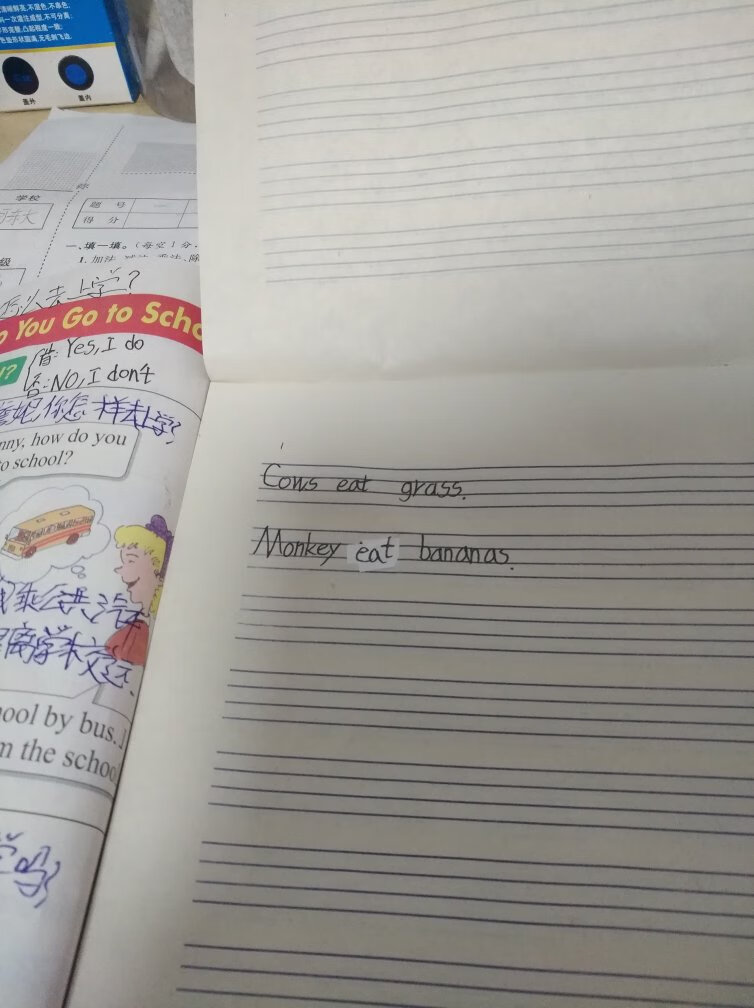 盖外
盖内
学校
题 号 一
得 分
一、填一填。(每空1分,
级
去上学?
You Go to Scho
Yes, I do
否:NO, I dont
你怎样去上学?
nny, how do you
o school?
乘公共汽车
离学校
ool by bus. I
m the schoo
Cows eat grass.
Monkey eat bananas.